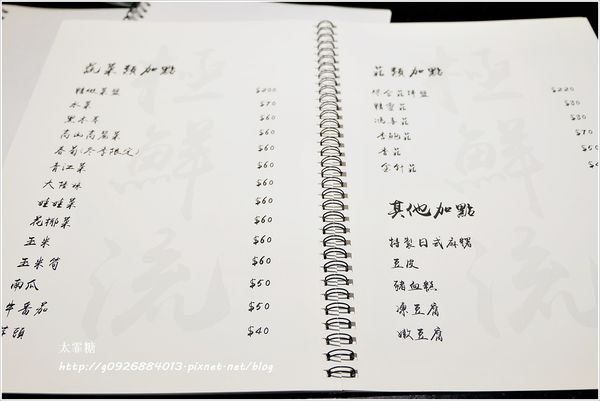 蔬菜類加點
精緻菜盤 $200
水菜 $70
黑木耳 $60
高山高麗菜 $60
春菊(冬季限定) $60
青江菜 $60
大陸妹 $60
娃娃菜 $60
花椰菜 $60
玉米 $60
玉米筍 $60
南瓜 $50
牛番茄 $50
芋頭 $40
菇類加點
綜合菇拼盤 $220
精靈菇 $80
鴻喜菇 $80
杏鮑菇 $70
香菇 $50
金針菇
其他加點
特製日式麻糬
豆皮
豬血糕
凍豆腐
嫩豆腐
極鮮流
極鮮流
太霏糖
http://g0926884013.pixnet.net/blog